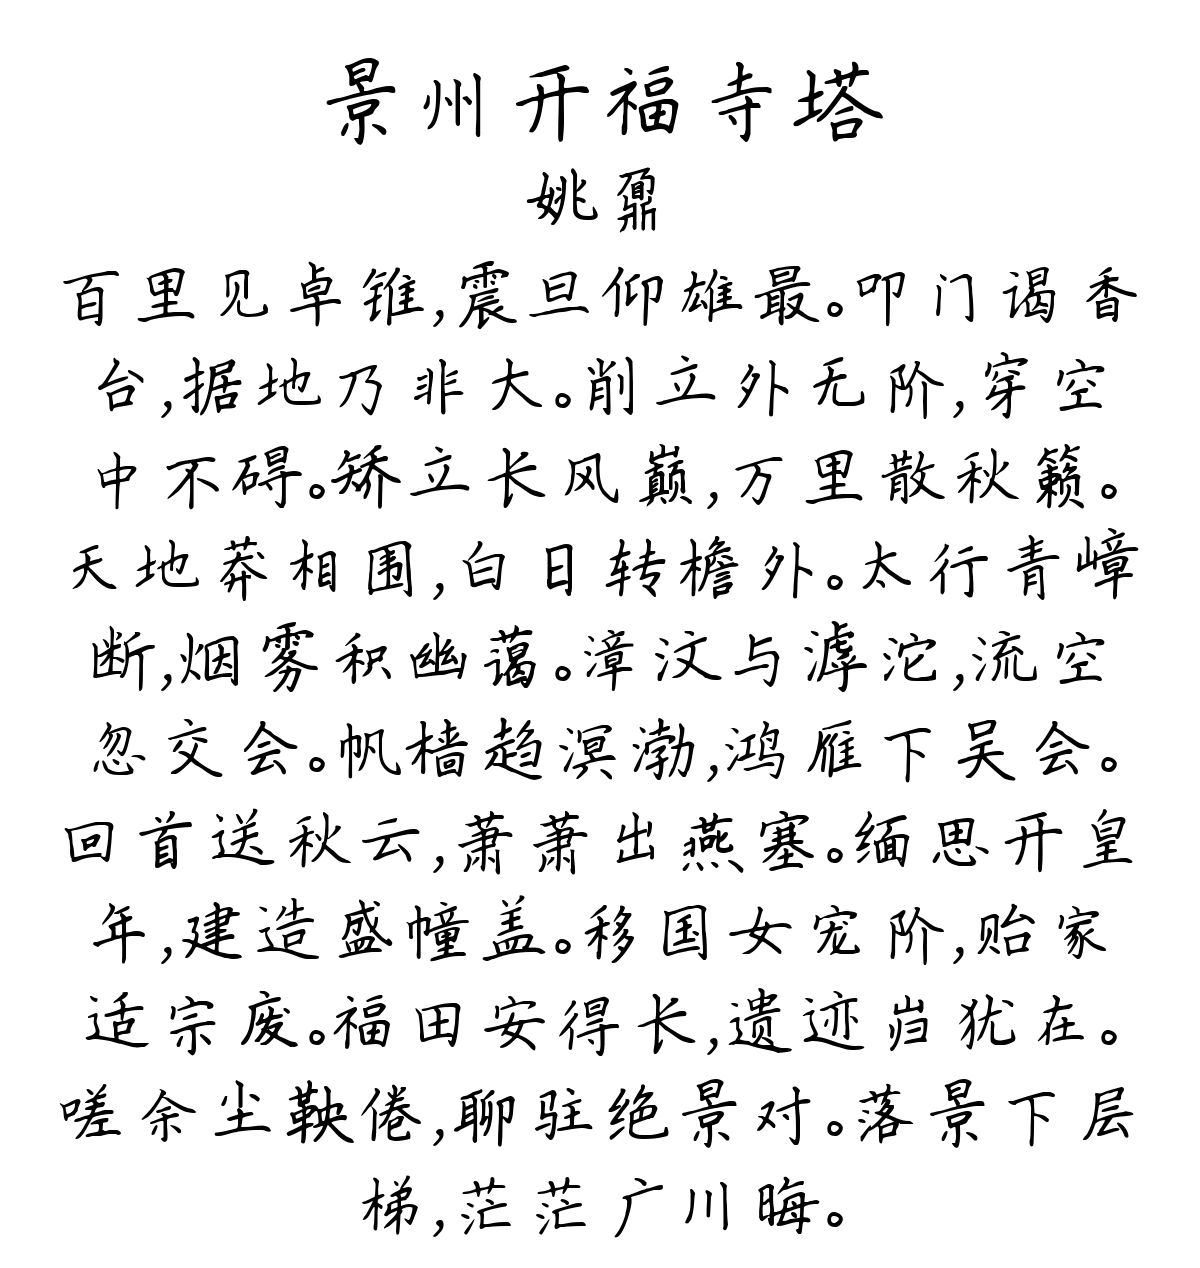 景州开福寺塔
姚鼐
百里见卓锥,震旦仰雄最。叩门谒香
台,据地乃非大。削立外无阶,穿空
中不碍。矫立长风巅,万里散秋籁。
天地莽相围,白日转檐外。太行青嶂
断,烟雾积幽蔼。漳汶与滹沱,流空
忽交会。帆樯趋溟渤,鸿雁下吴会。
回首送秋云,萧萧出燕塞。缅思开皇
年,建造盛幢盖。移国女宠阶,贻家
适宗废。福田安得长,遗迹岿犹在。
嗟余尘鞅倦,聊驻绝景对。落景下层
梯,茫茫广川晦。